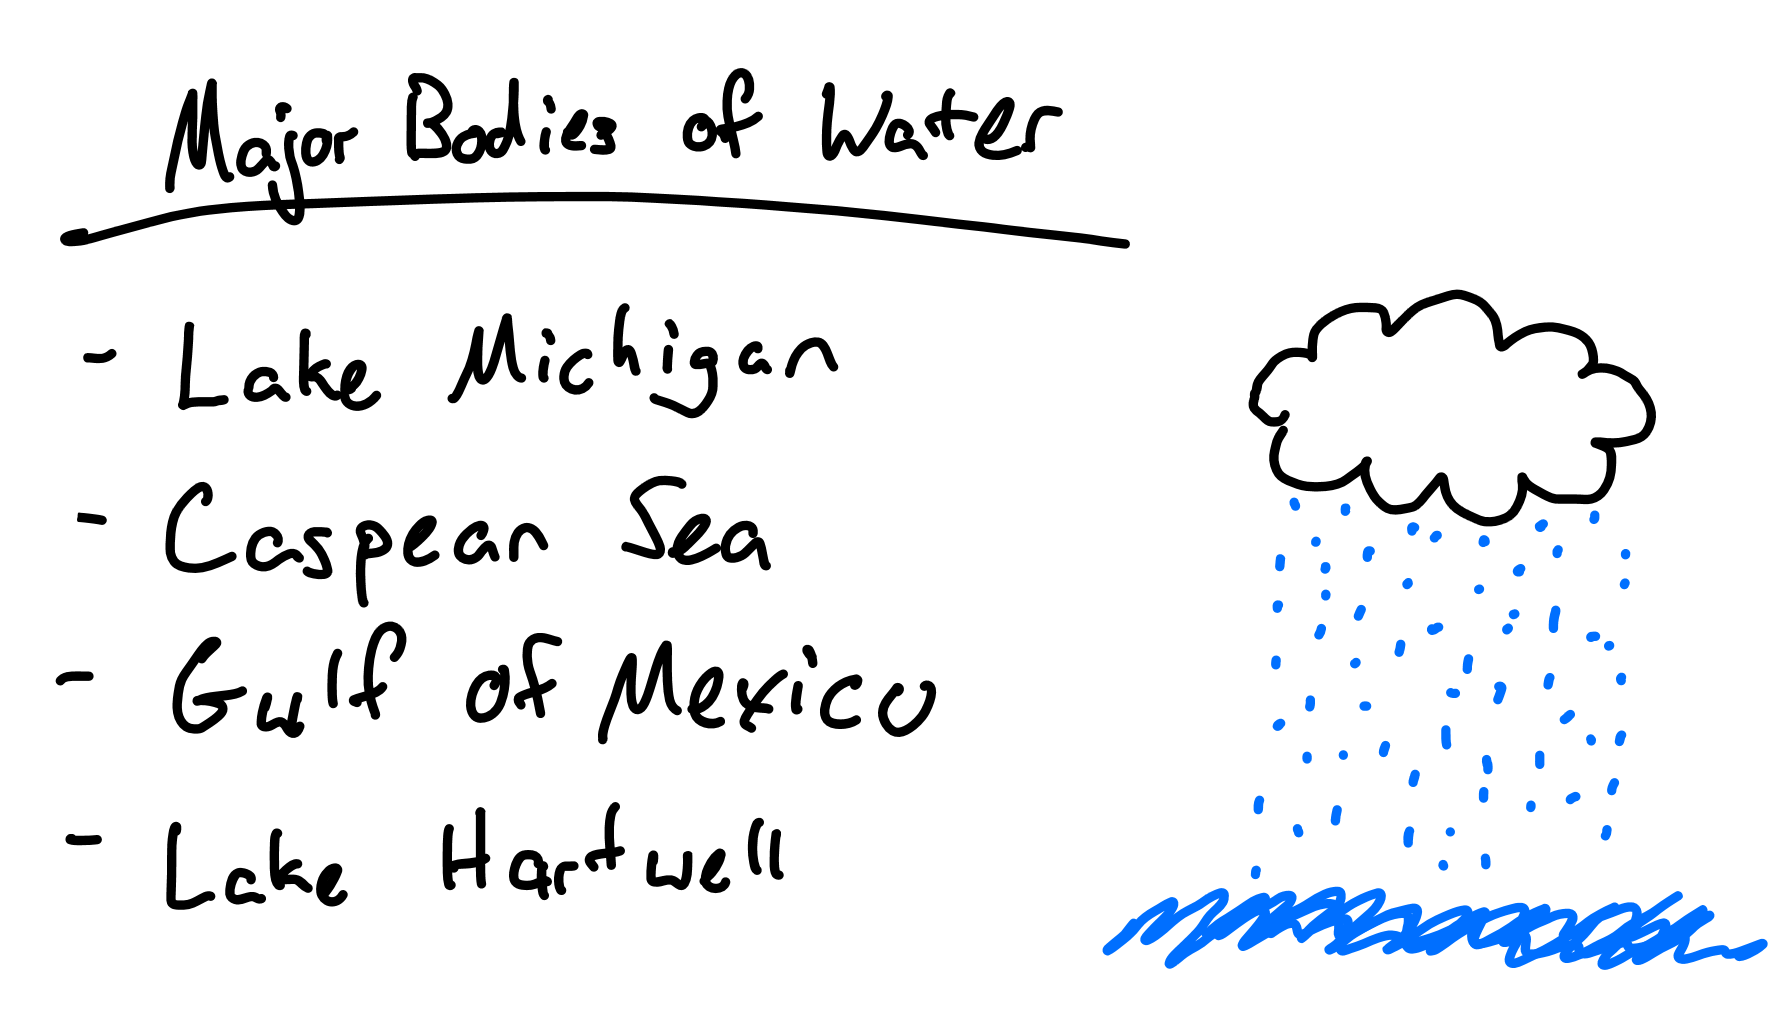 Major Bodies of Water
- Lake Michigan
- Caspean Sea
- Gulf of Mexico
- Lake Hartwell